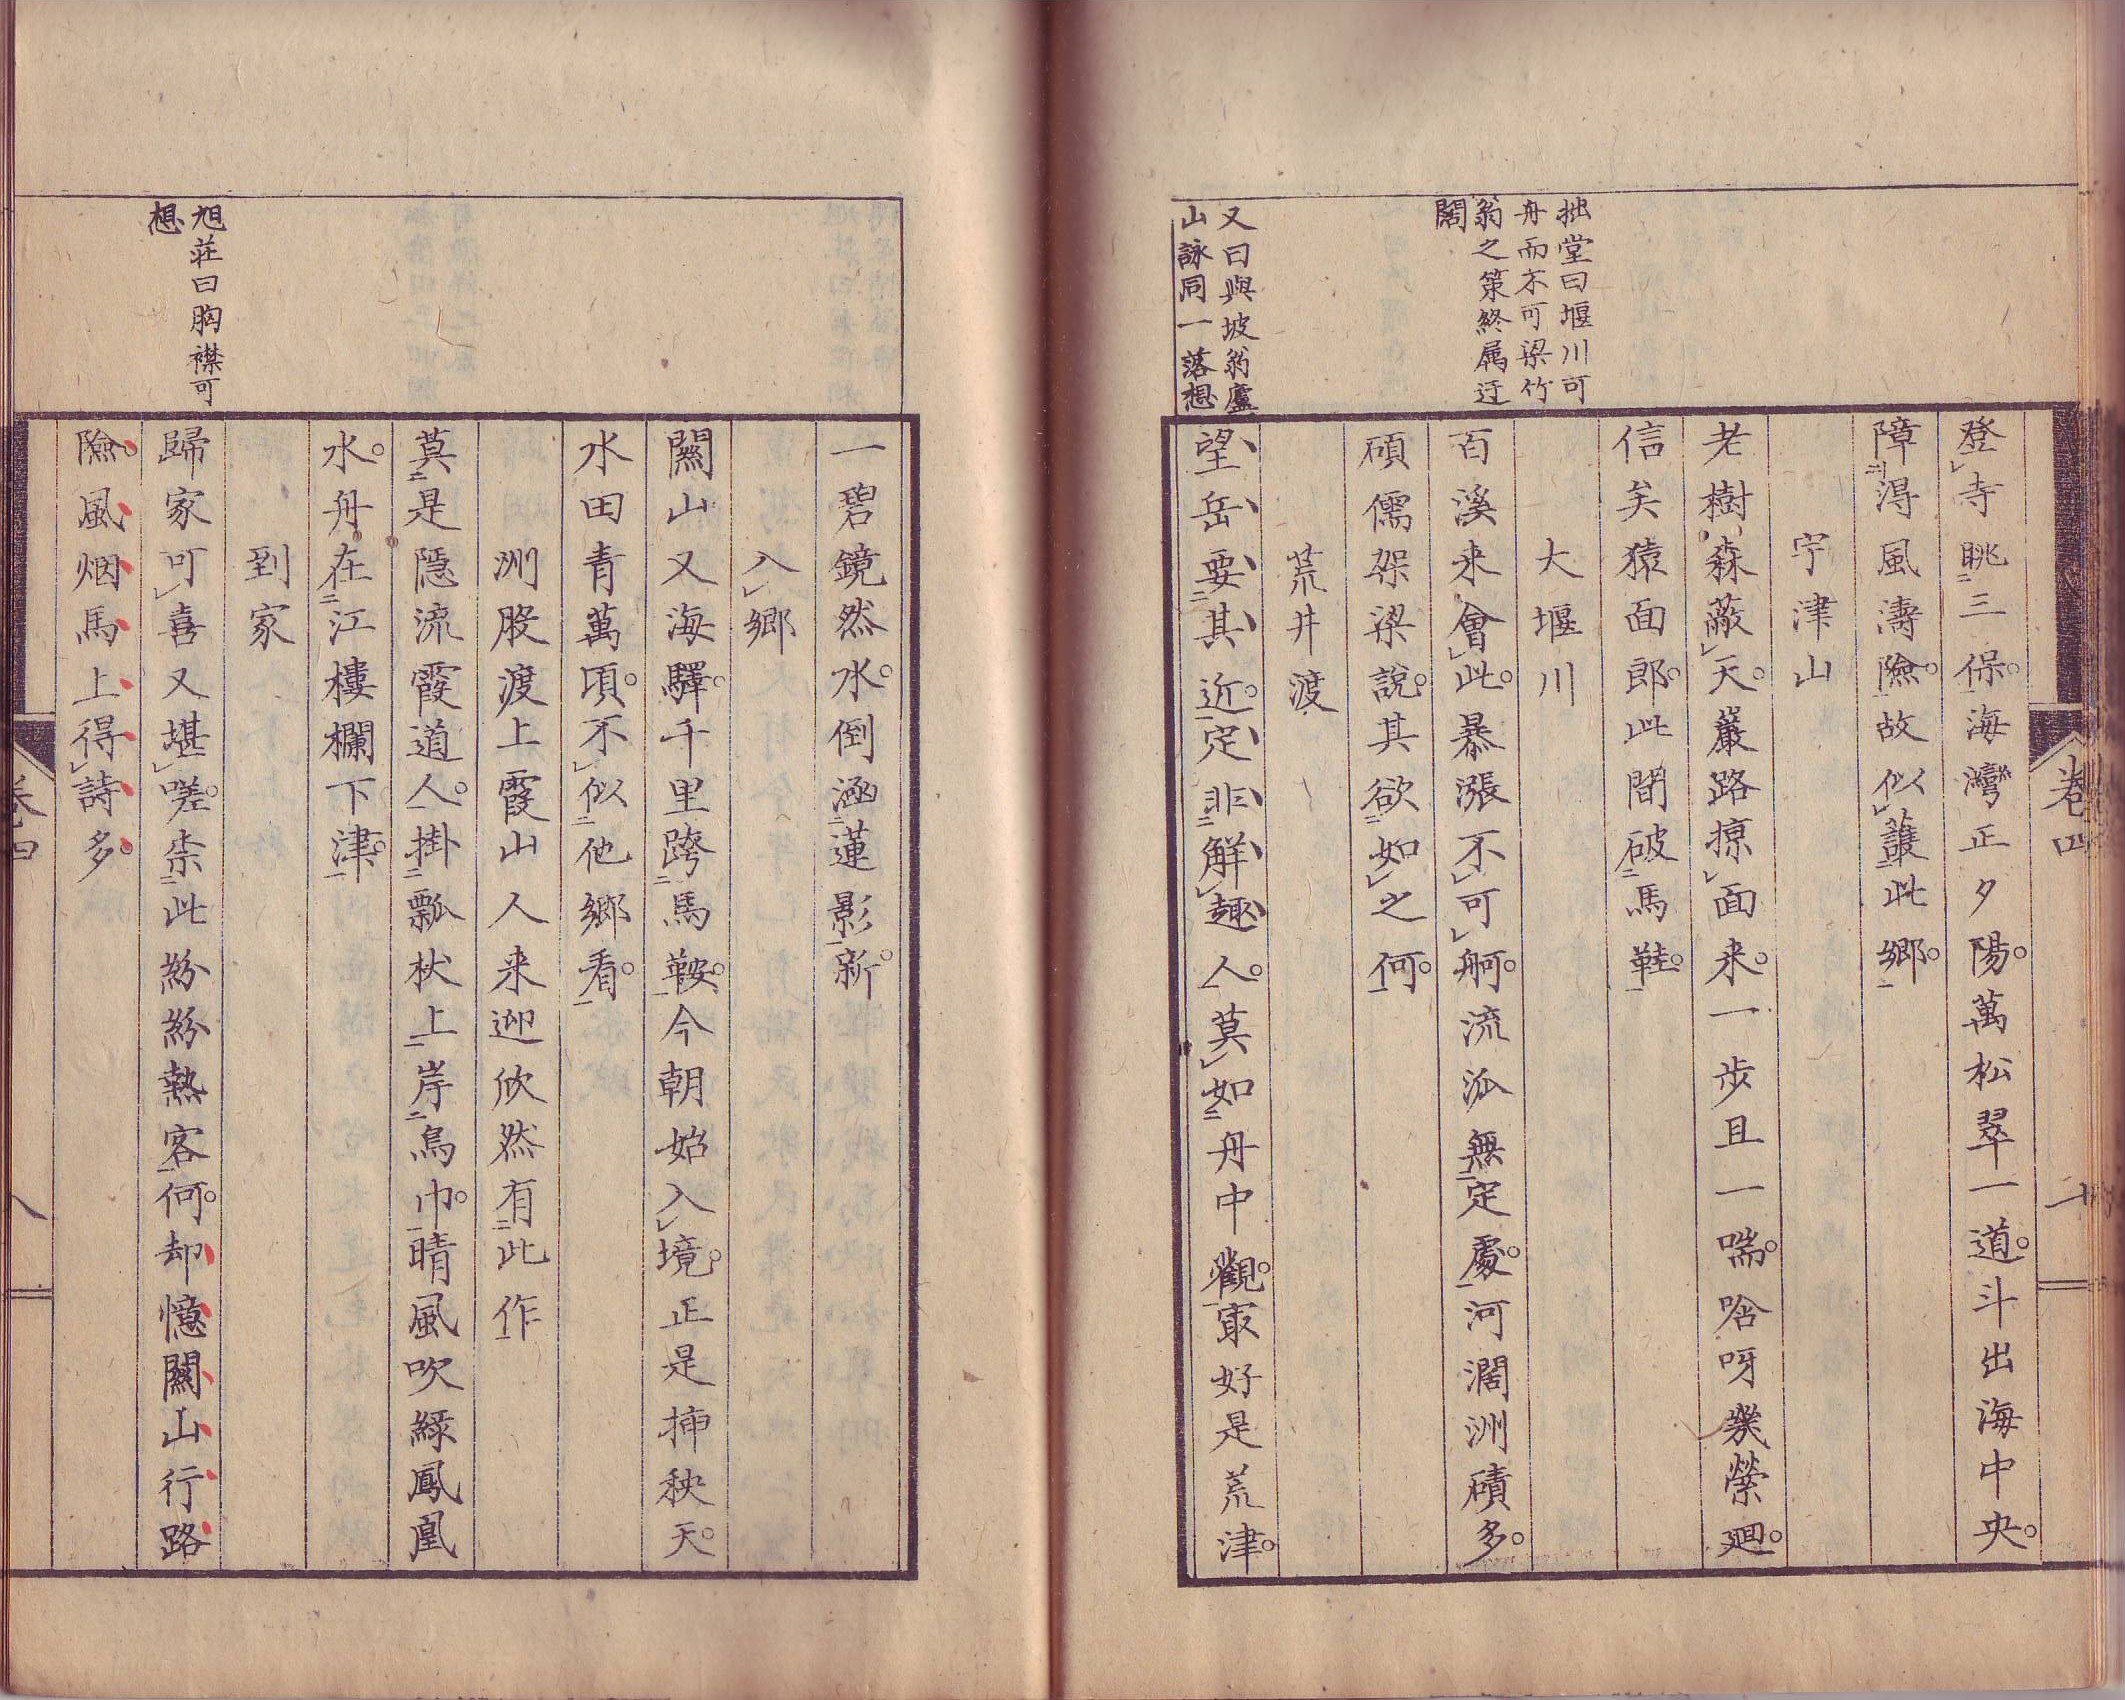 拙堂曰堰川可
舟而不可梁竹
翁之策終属迂
闊
又曰與坡翁廬
山詠同一落想
登寺眺三保海灣正夕陽萬松翠一道斗出海中央
障得風濤險故似護此郷
宇津山
老樹森蔽天巖路掠面来一歩且一喘啥呀幾縈廻
信矣猿面郎此間破馬鞋
大堰川
百溪来會此暴漲不可舸流派無定處河濶洲磧多
碩儒架梁說其欲如之何
荒井渡
望岳要其近定非解趣人莫如舟中觀冣好是荒津
卷四
旭荘曰胸襟可
想
一碧鏡然水倒涵蓮影新
入郷
關山又海驛千里跨馬鞍今朝始入境正是挿秧天
水田青萬頃不似他郷看
洲股渡上霞山人来迎欣然有此作
莫是隱流霞道人掛瓢杖上岸烏巾晴風吹綠鳳凰
水舟在江樓欄下津
到家
歸家可喜又堪嗟柰此紛紛熱客何却憶關山行路
險風烟馬上得詩多
卷四
八